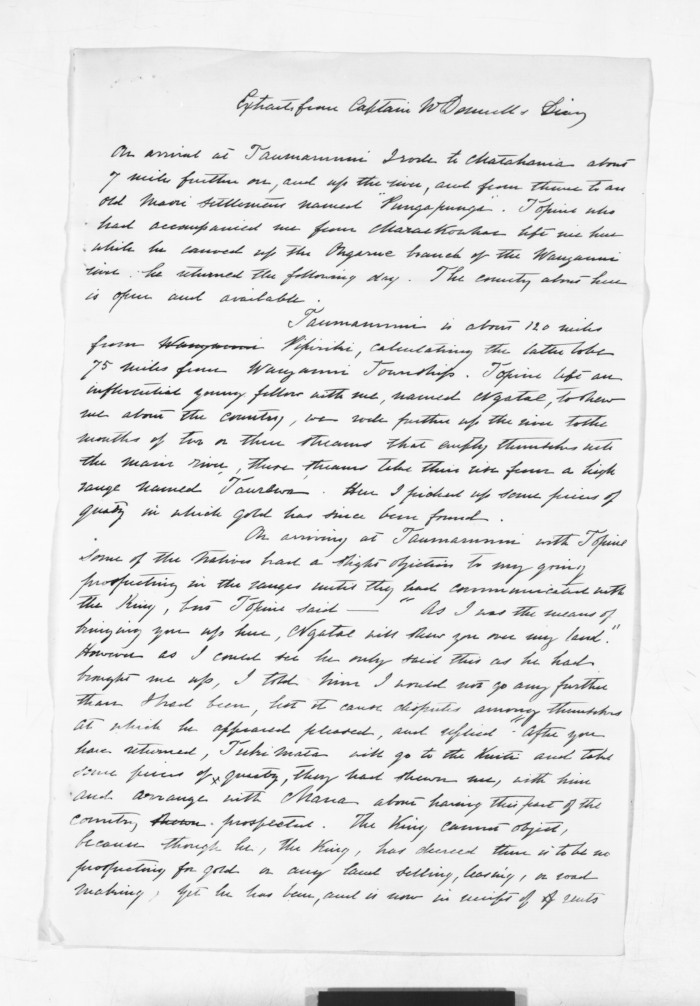 Extracts from Captain McDonnell's Diary
On arrival at Taumarunui I rode to Matahaeia about
7 miles further on, and up the river, and from thence to an
old Maori settlement named "Pungapunga". Topine who
had accompanied me from Maraekowhai left me here
while he canoed up the Ongarue branch of the Wanganui
river. he returned the following day. The country about here
is open and available.
Taumarunui is about 120 miles
from Wanganui Pipiriki, calculating the latter to be
75 miles from Wanganui Township. Topine left an
influential young fellow with me, named Ngatae, to shew
me about the country, we rode further up the river to the
mouths of two or three streams that empty themselves into
the main river, these streams take their rise from a high
range named "Taurewa". Here I picked up some pieces of
quartz in which gold has since been found.
On arriving at Taumarunui with Topine
some of the Natives had a slight objection to my going
prospecting in the ranges until they had communicated with
the King, but Topine said — "As I was the means of
bringing you up here, Ngatae will shew you over my land."
However as I could see he only said this as he had
brought me up, I told him I would not go any further
than I had been, lest it cause disputes among themselves
at which he appeared pleased, and replied "After you
have returned, Tuhi Mata will go to the Kuiti and take
some pieces of x quartz, they had shewn me, with him
and arrange with Mana about having this part of the
country shewn prospected. The King cannot object,
because though he, the King, has decreed there is to be no
prospecting for gold or any land selling, leasing, or road
making, yet he has been, and is now in receipt of rents